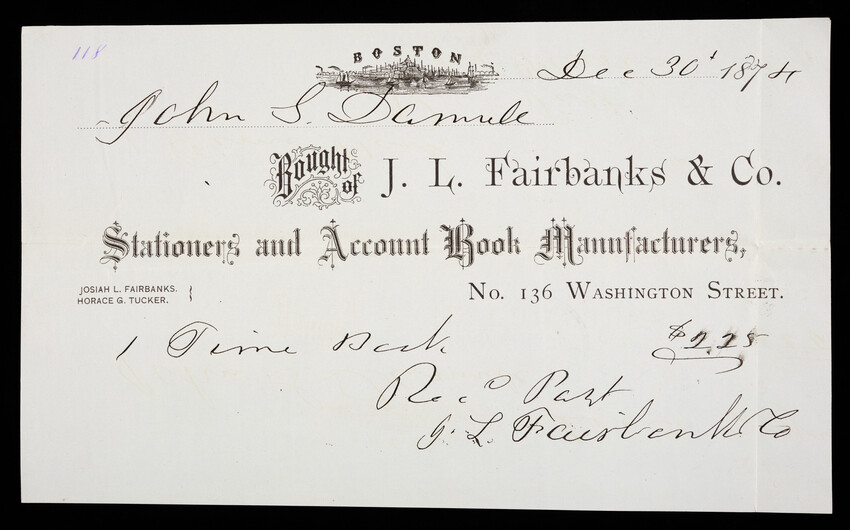 118
BOSTON
Dec 30' 1874
John S. Damrell
Bought of J. L. Fairbanks & Co.
Stationers and Account Book Manufacturers,
JOSIAH L. FAIRBANKS.
HORACE G. TUCKER.
No. 136 Washington Street.
1 Time Book $2.25
Rec'd Payt
J. L. Fairbanks Co